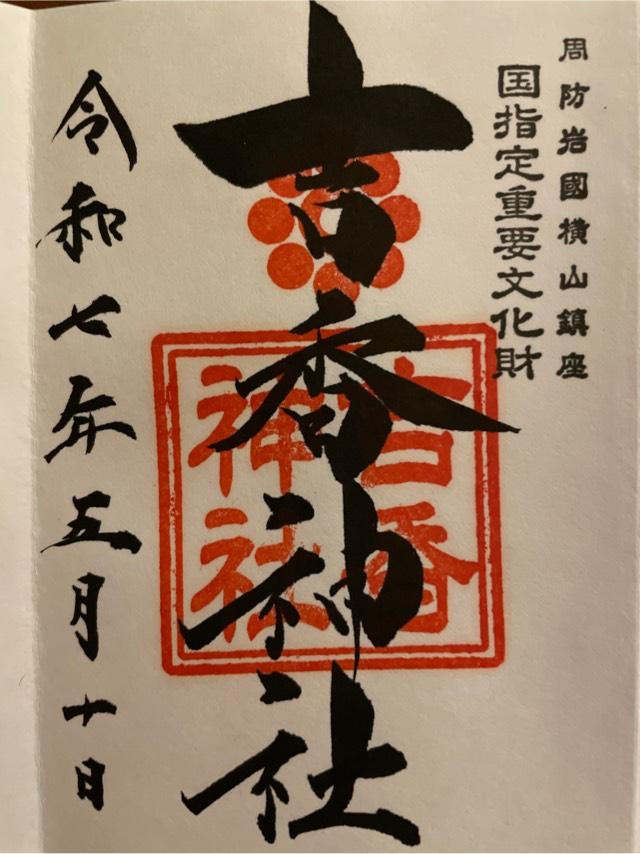 周防岩國横山鎮座
国指定重要文化財
吉香神社
吉香
神社
令和七年五月十日